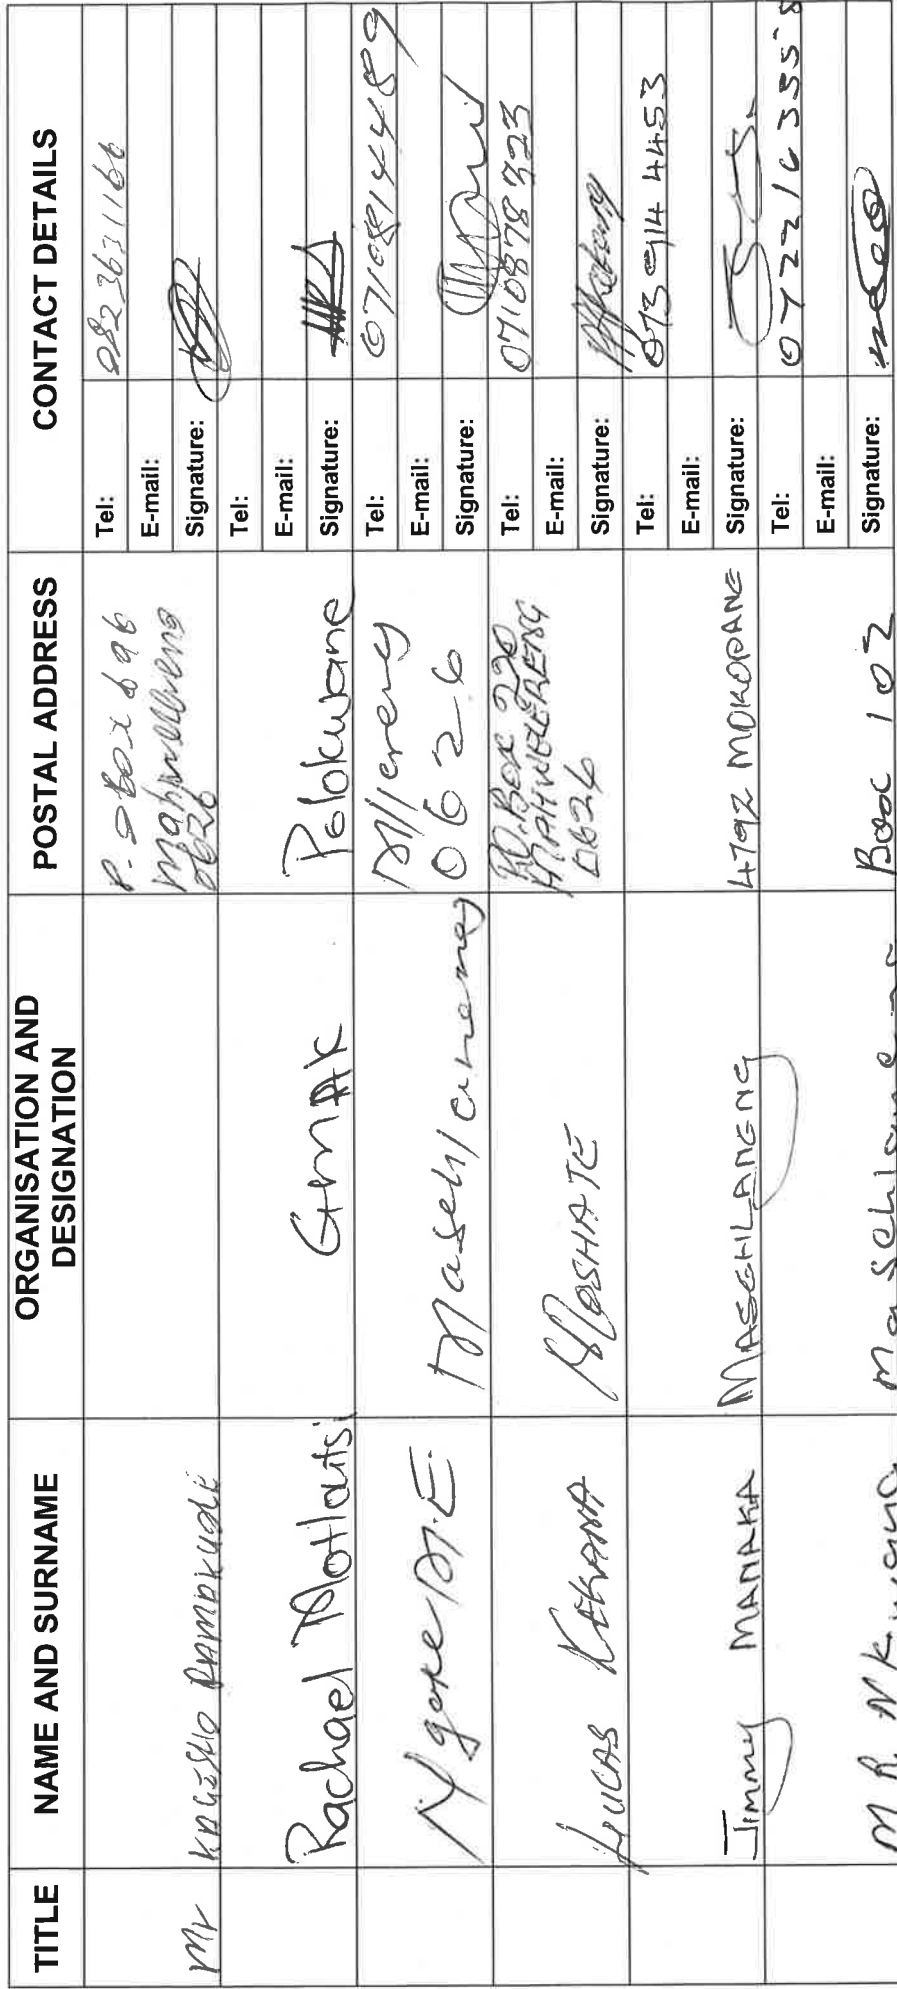 TITLE
NAME AND SURNAME
ORGANISATION AND
DESIGNATION
POSTAL ADDRESS
CONTACT DETAILS
Mr
KAGISHO RAMAKUDE
P. O Box 696
Mahwelereng
0626
Tel: 0823631166
E-mail:
Signature:
Rachael Motlatsi
GMAK
Polokwane
Tel:
E-mail:
Signature:
M.E.
0626
Tel: 0710814489
E-mail:
Signature:
LUCAS KEKANA
MOSHATE
P.O. BOX 220
MAHWELERENG
0626
Tel: 0710878723
E-mail:
Signature:
Jimmy MANAKA
MASEHLANENG
4792 MOKOPANE
Tel: 073 914 4453
E-mail:
Signature:
M. R.
Box 102
Tel: 0722163558
E-mail:
Signature: